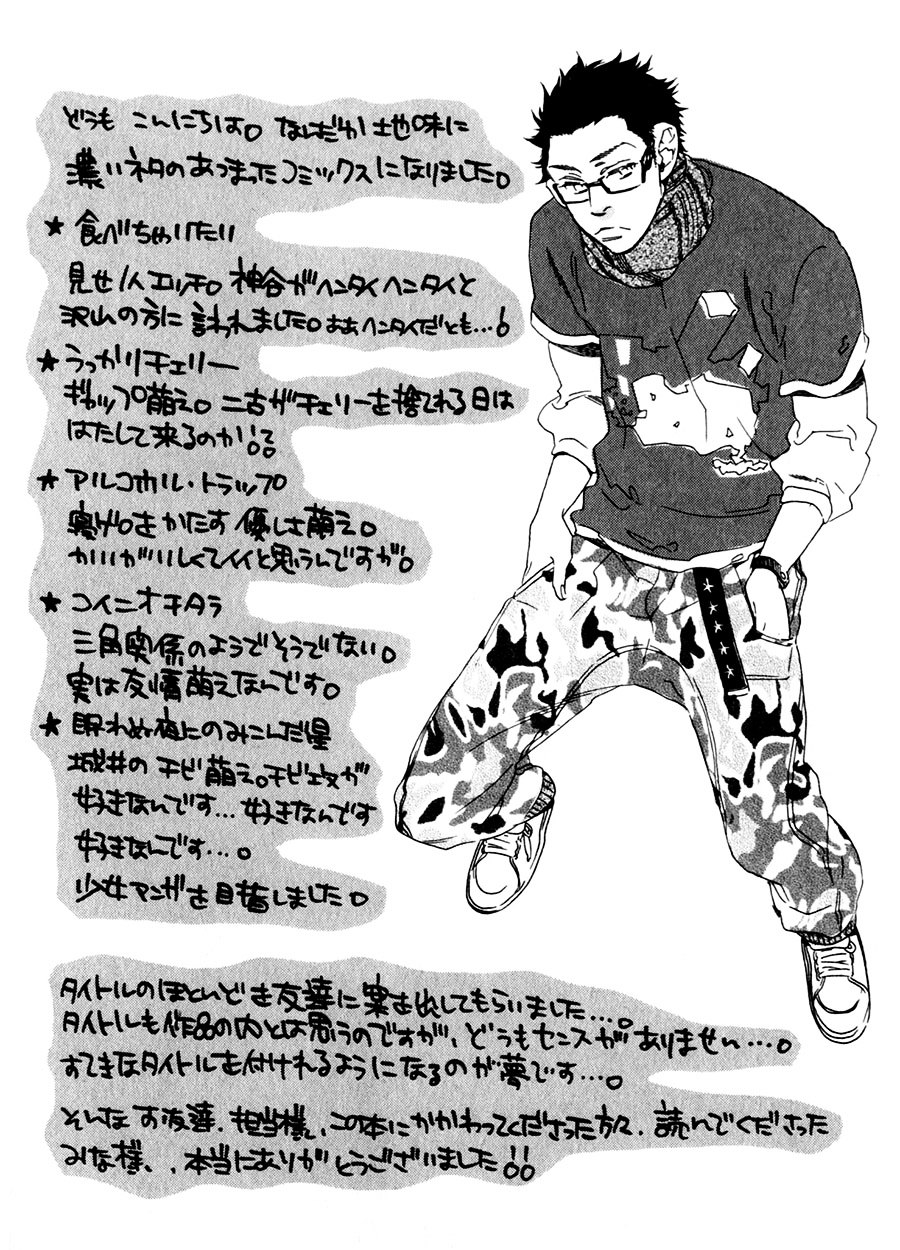 どうも こんにちは。なんだか地味に
濃いネタのあつまったコミックスになりました。
★ 食べちゃいたい
見せ1人エッチ。神谷がヘンタイヘンタイと
沢山の方に言われました。ああヘンタイだとも…!
★ うっかりチェリー
ギャップ萌え。二古がチェリーを捨てれる日は
はたして来るのか!?
★ アルコホル・トラップ
寝ゲロをかたす優しさ萌え。
かいがいしくてイイと思うんですが。
★ コイニオチタラ
三角関係のようでそうでない。
実は友情萌えなんです。
★ 眠れぬ夜にのみこんだ星
城井のチビ萌え。チビ攻が
好きなんです…好きなんです
好きなんです…。
少女マンガを目指しました。
タイトルのほとんどを友達に案を出してもらいました…。
タイトルも作品の内とは思うのですが、どうもセンスがありません…。
すてきなタイトルを付けれるようになるのが夢です…。
そんなす友達、担当様、この本にかかわってくださった方々、読んでくださった
みな様、、本当にありがとうございました!!